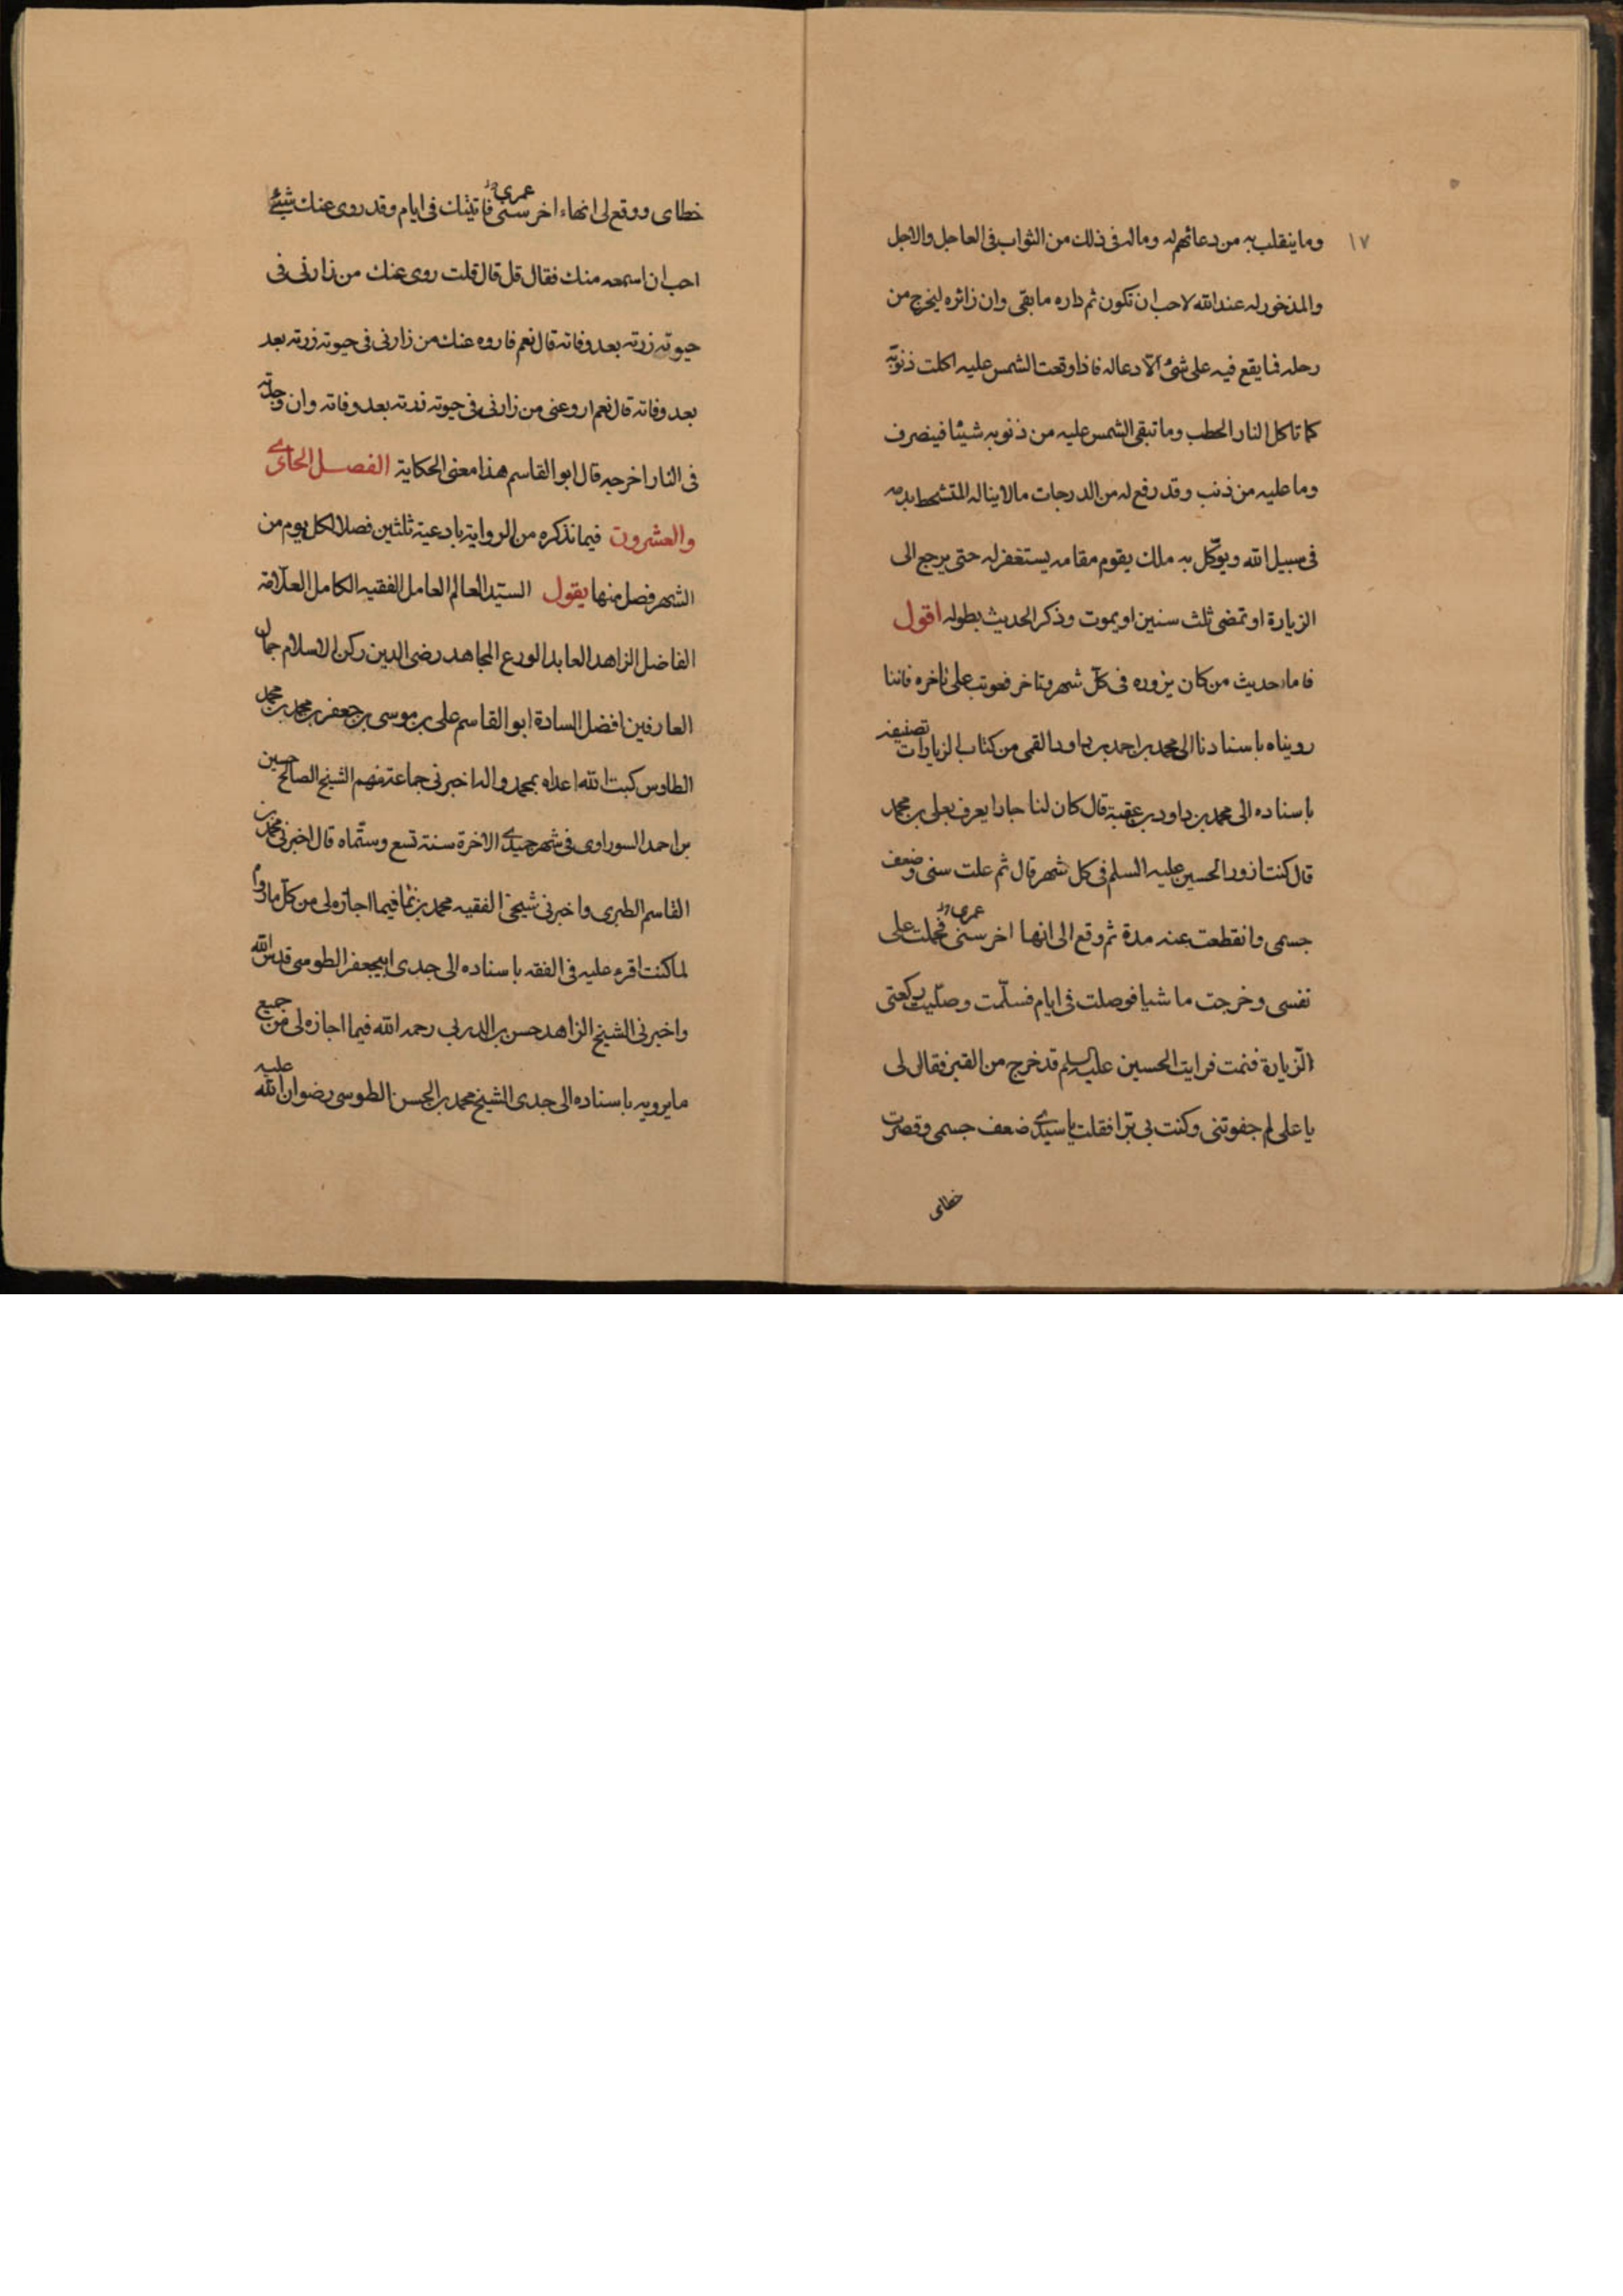 ١٧
وما ينقلب به من دعائهم له وماله فى ذلك من الثواب فى العاجل والاجل
والمذخور له عند الله لاحب ان تكون ثم داره ما بقى وان زائره ليخرج من
رحله فما يقع فيه على شئ الا دعا له فاذا وقعت الشمس عليه اكلت ذنوبه
كما تاكل النار الحطب وما تبقى الشمس عليه من ذنوبه شيئا فينصرف
وما عليه من ذنب وقد رفع له من الدرجات مالا يناله المتشحط بدمه
فى سبيل الله ويوكّل به ملك يقوم مقامه يستغفر له حتى يرجع الى
الزيارة او تمضى ثلث سنين او يموت وذكر الحديث بطوله اقول
فاما حديث من كان يزوره فى كلّ شهر وتاخر فعوتب على تاخره فاننا
رويناه باسنادنا الى محمد بن احمد بن داود القمى من كتاب الزيارات تصنيفه
باسناده الى محمد بن داود بن عقبة قال كان لنا جارا يعرف بعلى بن محمد
قال كنت ازور الحسين عليه السلم فى كل شهر قال ثم علت سنى وضعف
جسمى وانقطعت عنه مدة ثم وقع الى انها اخر سنى عمرى فحملت على
نفسى وخرجت ماشيا فوصلت فى ايام فسلّمت وصلّيت ركعتى
الزّيارة فنمت فرايت الحسين عليه السلم قد خرج من القبر فقال لى
يا على لم جفوتنى وكنت بى برّا فقلت يا سيدى ضعف جسمى وقصرت
خطاى
خطاى ووقع لى انهاء اخر سنى عمرى فاتيتك فى ايام وقد روى عنك شئ
احب ان اسمعه منك فقال قل قال قلت روى عنك من زارنى فى
حيوته زرته بعد وفاته قال نعم فاروه عنك من زارنى فى حيوته زرته بعد
بعد وفاته قال نعم ارو عنى من زارنى فى حيوته زرته بعد وفاته وان وجدته
فى النار اخرجه قال ابو القاسم هذا معنى الحكاية الفصل الحادى
والعشرون فيما نذكره من الرواية بادعية ثلثين فصلا لكل يوم من
الشهر فصل منها يقول السيّد العالم العامل الفقيه الكامل العلّامة
الفاضل الزاهد العابد الورع المجاهد رضى الدين ركن الاسلام جمال
العارفين افضل السادة ابو القاسم على بن موسى بن جعفر بن محمد بن محمد
الطاوس كبت الله اعداه بمحمد واله اخبرنى جماعة منهم الشيخ الصالح حسين
بن احمد السوراوى فى شهر جميدى الاخرة سنة تسع وستّماه قال اخبرنى محمد بن
القاسم الطبرى واخبرنى شيخى الفقيه محمد بن نما فيما اجازه لى من كلّ ما رواه
لما كنت اقرء عليه فى الفقه باسناده الى جدى ابيجعفر الطوسى قدس الله
واخبرنى الشيخ الزاهد حسن بن الدربى رحمه الله فيما اجازه لى من جميع
ما يرويه باسناده الى جدى الشيخ محمد بن الحسن الطوسى رضوان الله عليه